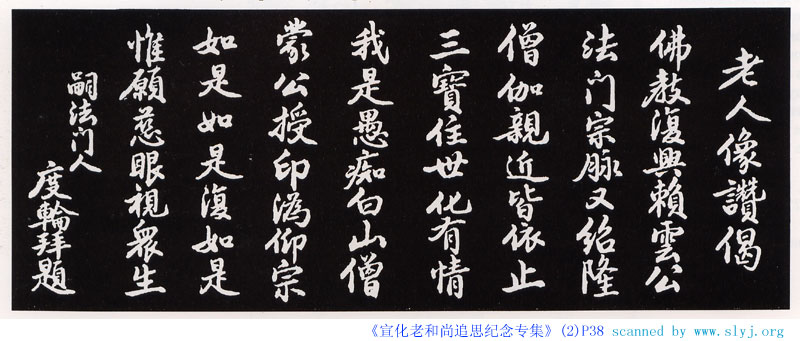 老人像讚偈
佛教復興賴雲公
法门宗脉又绍隆
僧伽親近皆依止
三寶住世化有情
我是愚痴白山僧
蒙公授印溈仰宗
如是如是復如是
惟願慈眼視眾生
嗣法门人
度輪拜題
《宣化老和尚追思纪念专集》(2)P38 scanned by www.slyj.org